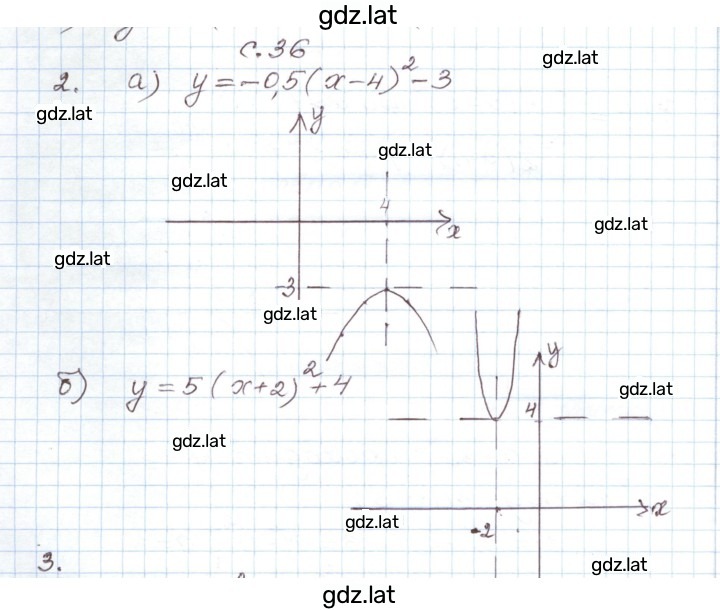 gdz.lat
с.36
gdz.lat
2. а) y = -0,5(x-4)² - 3
gdz.lat
y
gdz.lat
gdz.lat
4
gdz.lat
x
gdz.lat
-3
gdz.lat
y
б) y = 5(x+2)² + 4
gdz.lat
4
gdz.lat
x
gdz.lat
-2
3.
gdz.lat
gdz.lat